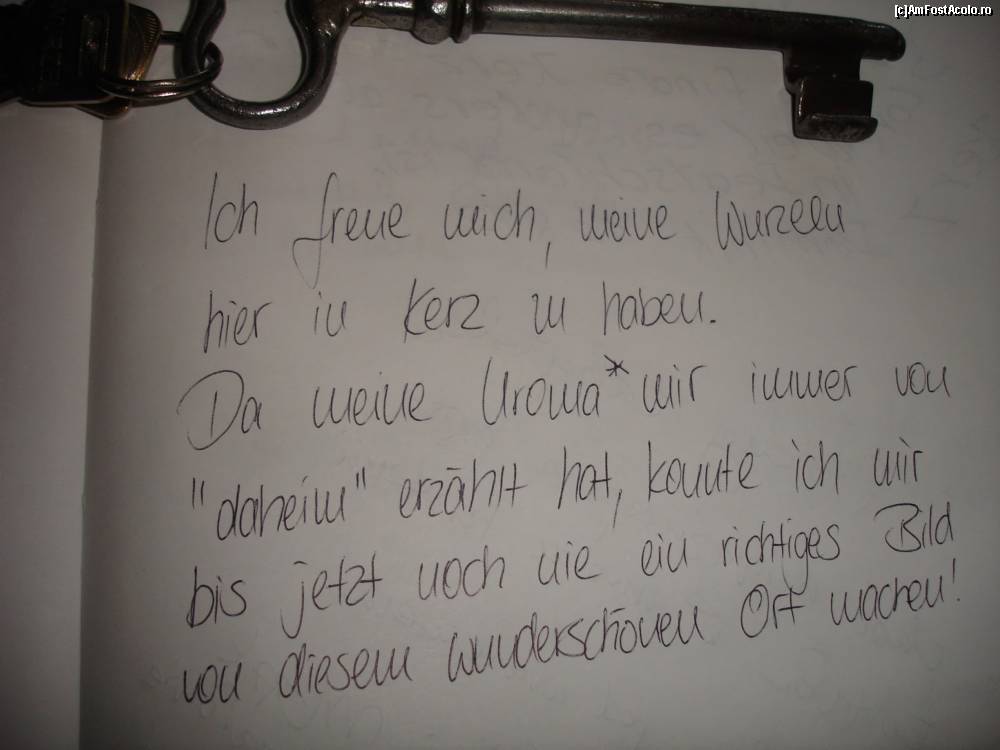 [c]AmFostAcolo.ro
Ich freue mich, meine Wurzeln
hier in Kerz zu haben.
Da meine Uroma* mir immer von
"daheim" erzählt hat, konnte ich mir
bis jetzt noch nie ein richtiges Bild
von diesem wunderschönen Ort machen!